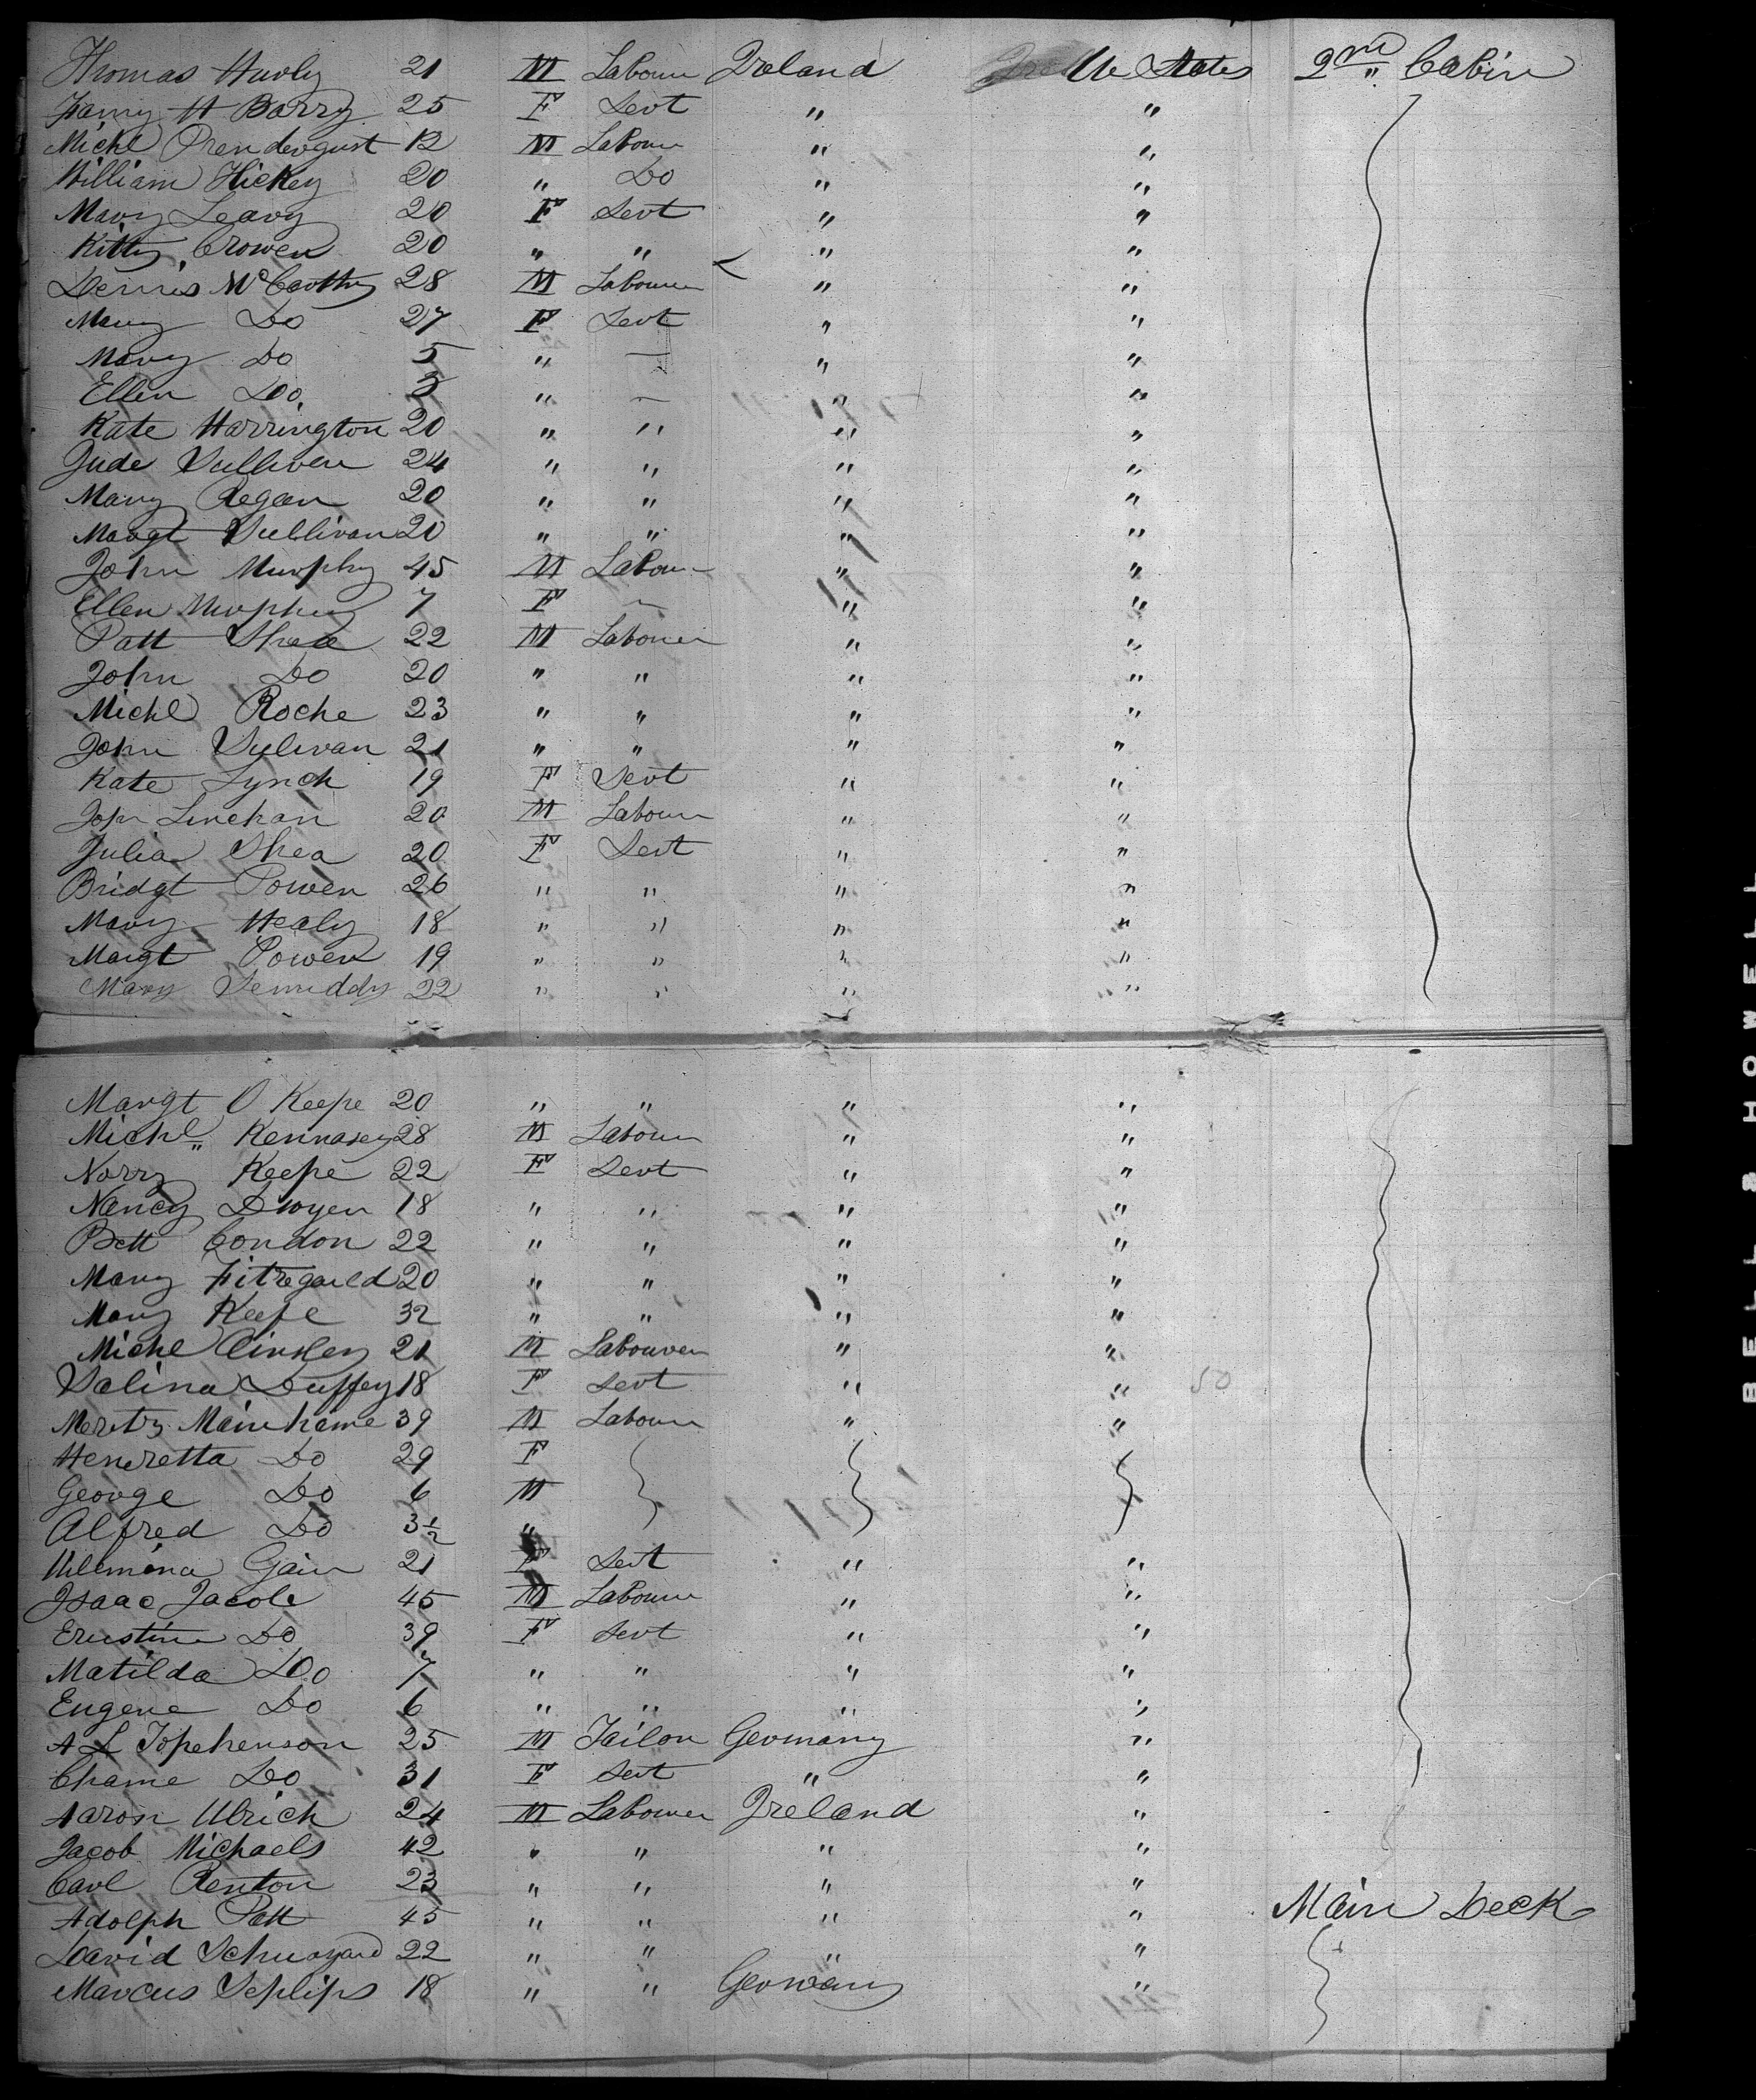 Thomas Hurly 21 M Labour Ireland Ue States 2nd Cabin
Fanny H Barry 25 F Sevt " "
Michl Prendergust 12 M Labour " "
William Hickey 20 " Do " "
Mary Leavy 20 F Sevt " "
Kitty Crowen 20 " " " "
Dennis McCarthy 28 M Labourer " "
Mary Do 27 F Sevt " "
Mary Do 5 " — " "
Ellen Do 3 " — " "
Kate Harrington 20 " " " "
Jude Sullivan 24 " " " "
Mary Regan 20 " " " "
Margt Sullivan 20 " " " "
John Murphy 45 M Labour " "
Ellen Murphy 7 F — " "
Patt Shea 22 M Labourer " "
John Do 20 " " " "
Michl Roche 23 " " " "
John Sulivan 21 " " " "
Kate Lynch 19 F Sevt " "
John Linehan 20 M Labour " "
Julia Shea 20 F Sevt " "
Bridgt Power 26 " " " "
Mary Healy 18 " " " "
Margt Power 19 " " " "
Mary 22 " " " "
Margt O Keefe 20 " " " "
Michl Kennasey 28 M Labour " "
Norry Keefe 22 F Sevt " "
Nancy Dwyer 18 " " " "
Bett Condon 22 " " " "
Mary Fitzegarld 20 " " " "
Mary Keefe 32 " " " "
Michl 21 M Labourer " "
Salina Duffey 18 F Sevt " " 50
Moritz Mainhame 39 M Labour " "
Henretta Do 29 F
George Do 6 M
Alfred Do 3½ "
Gain 21 F Sevt " "
Isaac Jacole 45 M Labour " "
Ernstine Do 39 F Sevt " "
Matilda Do 7 " " " "
Eugene Do 6 " " " "
A L Topehenson 25 M Tailor Germany "
Chame Do 31 F Sevt " "
Aaron Ulrich 24 M Labourer Ireland "
Jacob Michaels 42 " " " "
Carl Renton 23 " " " "
Adolph Patt 45 " " " " Main Deck
David 22 " " " "
Marcus Schlips 18 " " Germany "
BELL & HOWELL